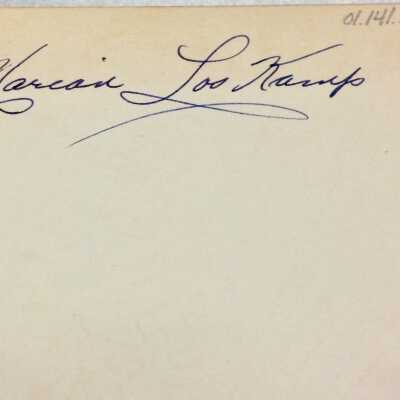 01.141.
Marian Los Kamp